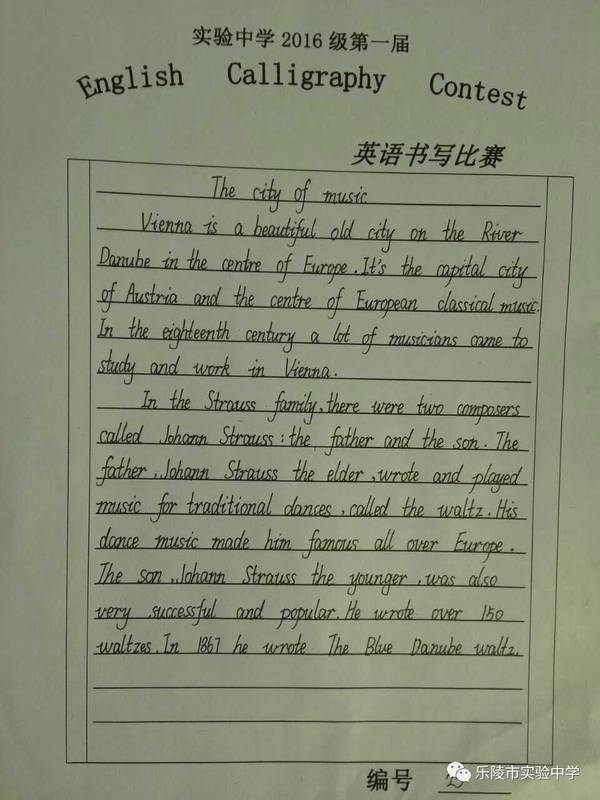 实验中学2016级第一届
English Calligraphy Contest
英语书写比赛
The city of music
Vienna is a beautiful old city on the River
Danube in the centre of Europe. It's the capital city
of Austria and the centre of European classical music.
In the eighteenth century a lot of musicians came to
study and work in Vienna.
In the Strauss family, there were two composers
called Johann Strauss: the father and the son. The
father, Johann Strauss the elder, wrote and played
music for traditional dances, called the waltz. His
dance music made him famous all over Europe.
The son, Johann Strauss the younger, was also
very successful and popular. He wrote over 150
waltzes. In 1867 he wrote The Blue Danube waltz.
编号
乐陵市实验中学